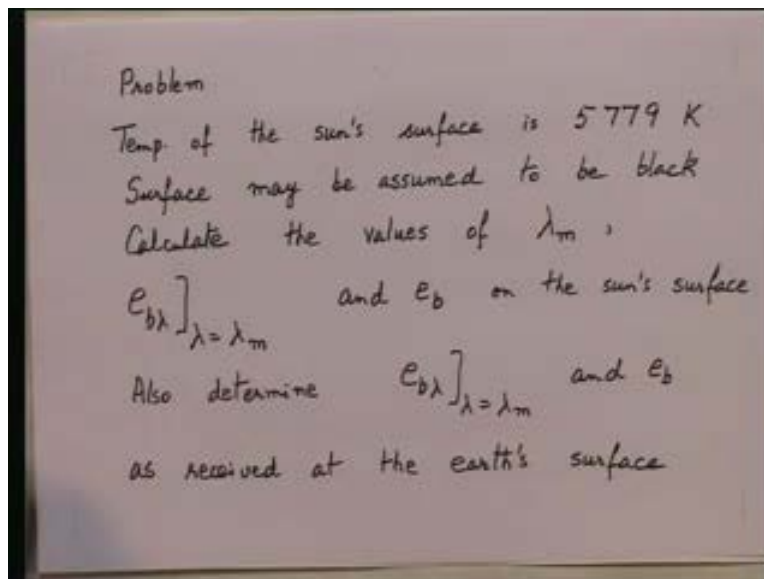 Problem
Temp. of the sun's surface is 5779 K
Surface may be assumed to be black
Calculate the values of λm ,
ebλ]λ=λm and eb on the sun's surface
Also determine ebλ]λ=λm and eb
as received at the earth's surface